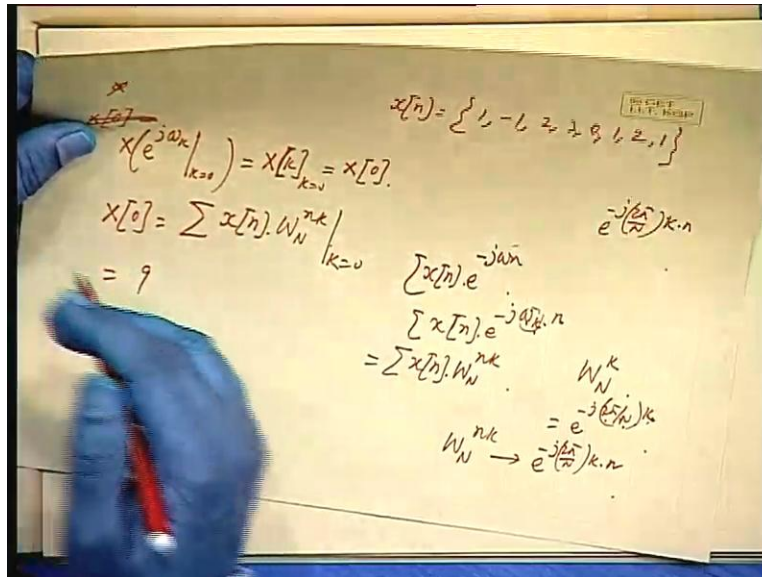 x[n] = { 1, -1, 2, 3, 0, 1, 2, 1 }
I.I.T. KGP
x[0]
X(e^{jω_k}|_{k=0}) = X[k]_{k=0} = X[0].
X[0] = Σ x[n].W_N^{nk}|_{k=0}
= 9
e^{-j(2π/N)k.n}
Σ x[n].e^{-jωn}
Σ x[n].e^{-jω_k.n}
= Σ x[n].W_N^{nk}.
W_N^k
= e^{-j(2π/N)k}.
W_N^{nk} → e^{-j(2π/N)k.n}